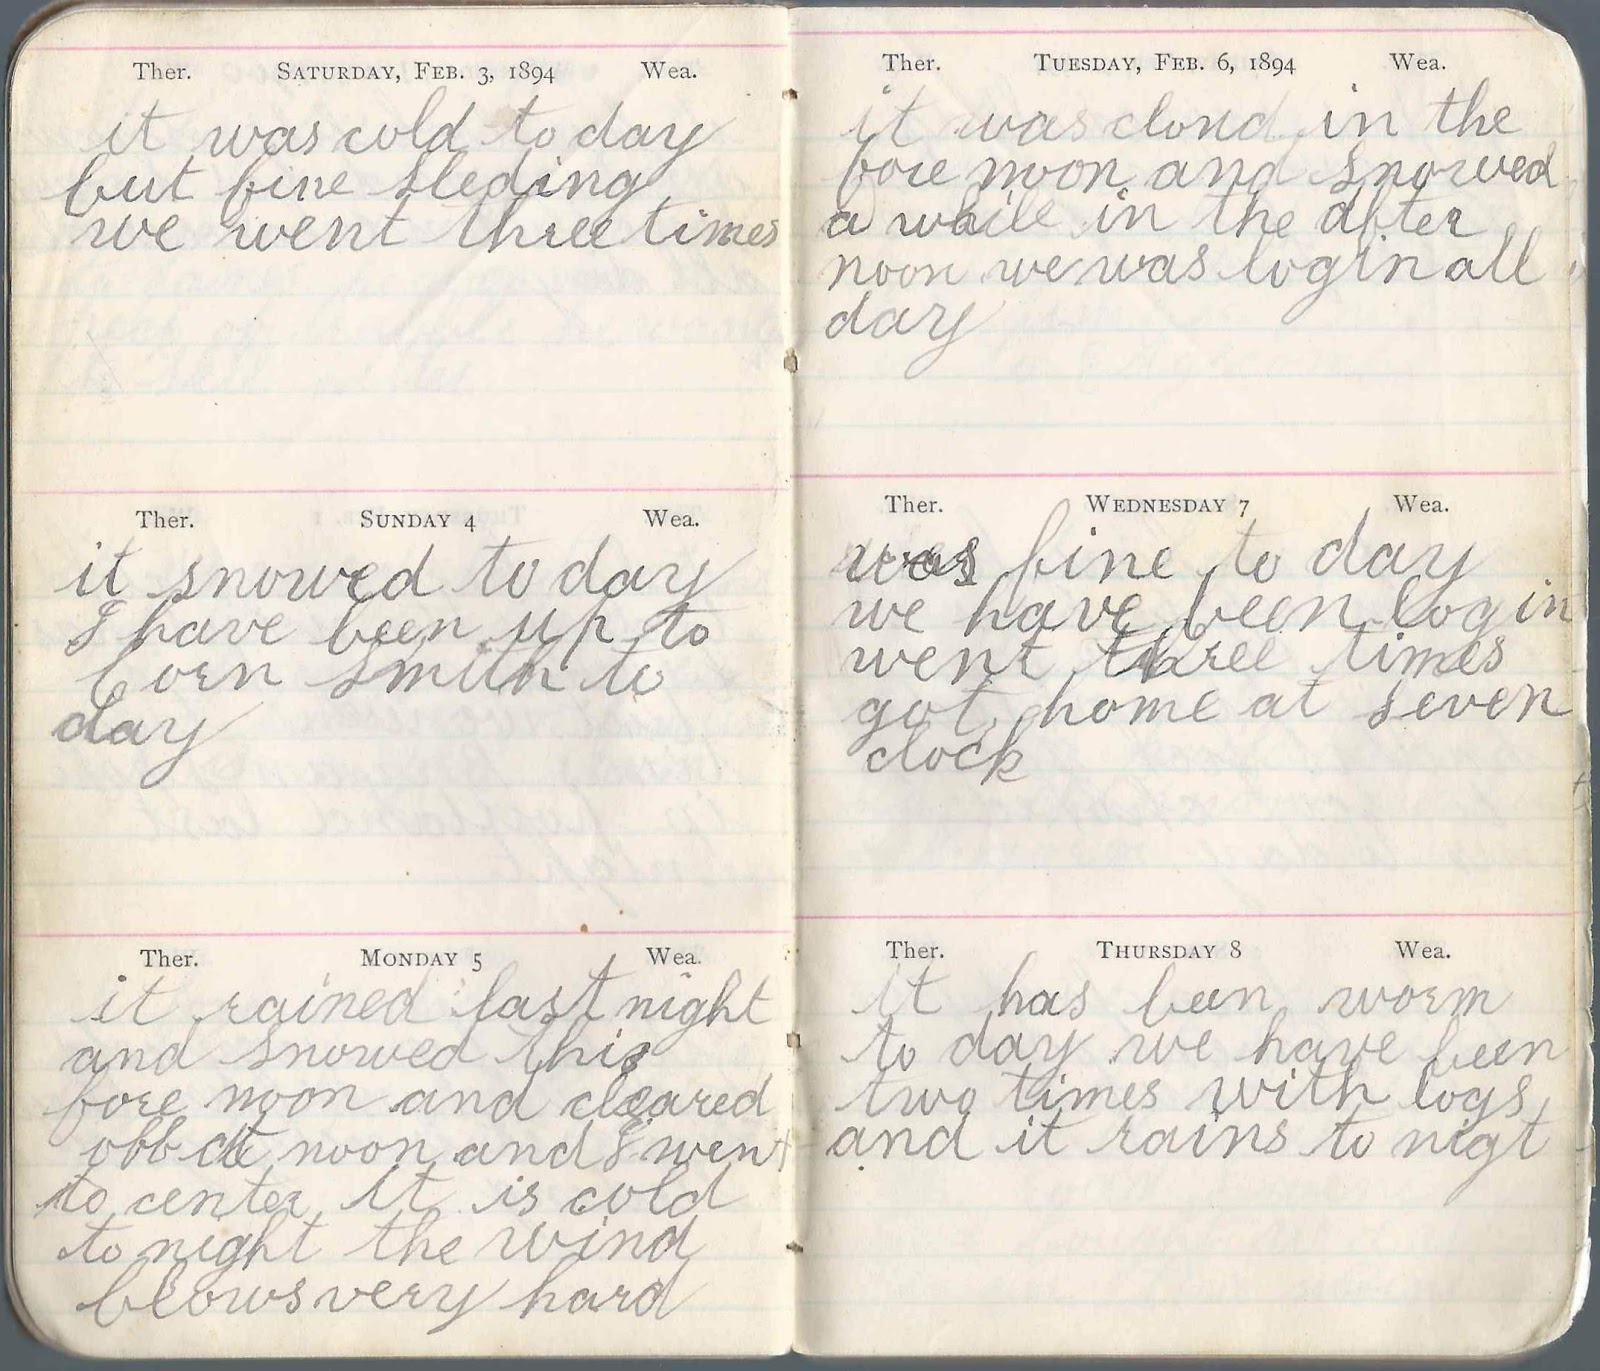 Ther. SATURDAY, FEB. 3, 1894 Wea.
it was cold to day
but fine sleding
we went three times
Ther. SUNDAY 4 Wea.
it snowed to day
I have been up to
Corn Smith to
day
Ther. MONDAY 5 Wea.
it rained last night
and snowed this
fore noon and cleared
off at noon and I went
to center it is cold
to night the wind
blows very hard
Ther. TUESDAY, FEB. 6, 1894 Wea.
it was cloud in the
fore noon and snowed
a while in the after
noon we was login all
day
Ther. WEDNESDAY 7 Wea.
was fine to day
we have been login
went three times
got home at seven
clock
Ther. THURSDAY 8 Wea.
it has been worm
to day we have been
two times with logs
and it rains to nigt